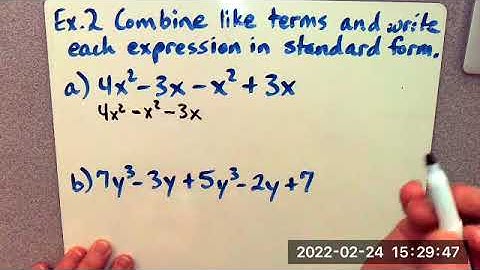 Ex.2 Combine like terms and write
each expression in standard form.
a) 4x² - 3x - x² + 3x
4x² - x² - 3x
b) 7y³ - 3y + 5y³ - 2y + 7
2022-02-24 15:29:47